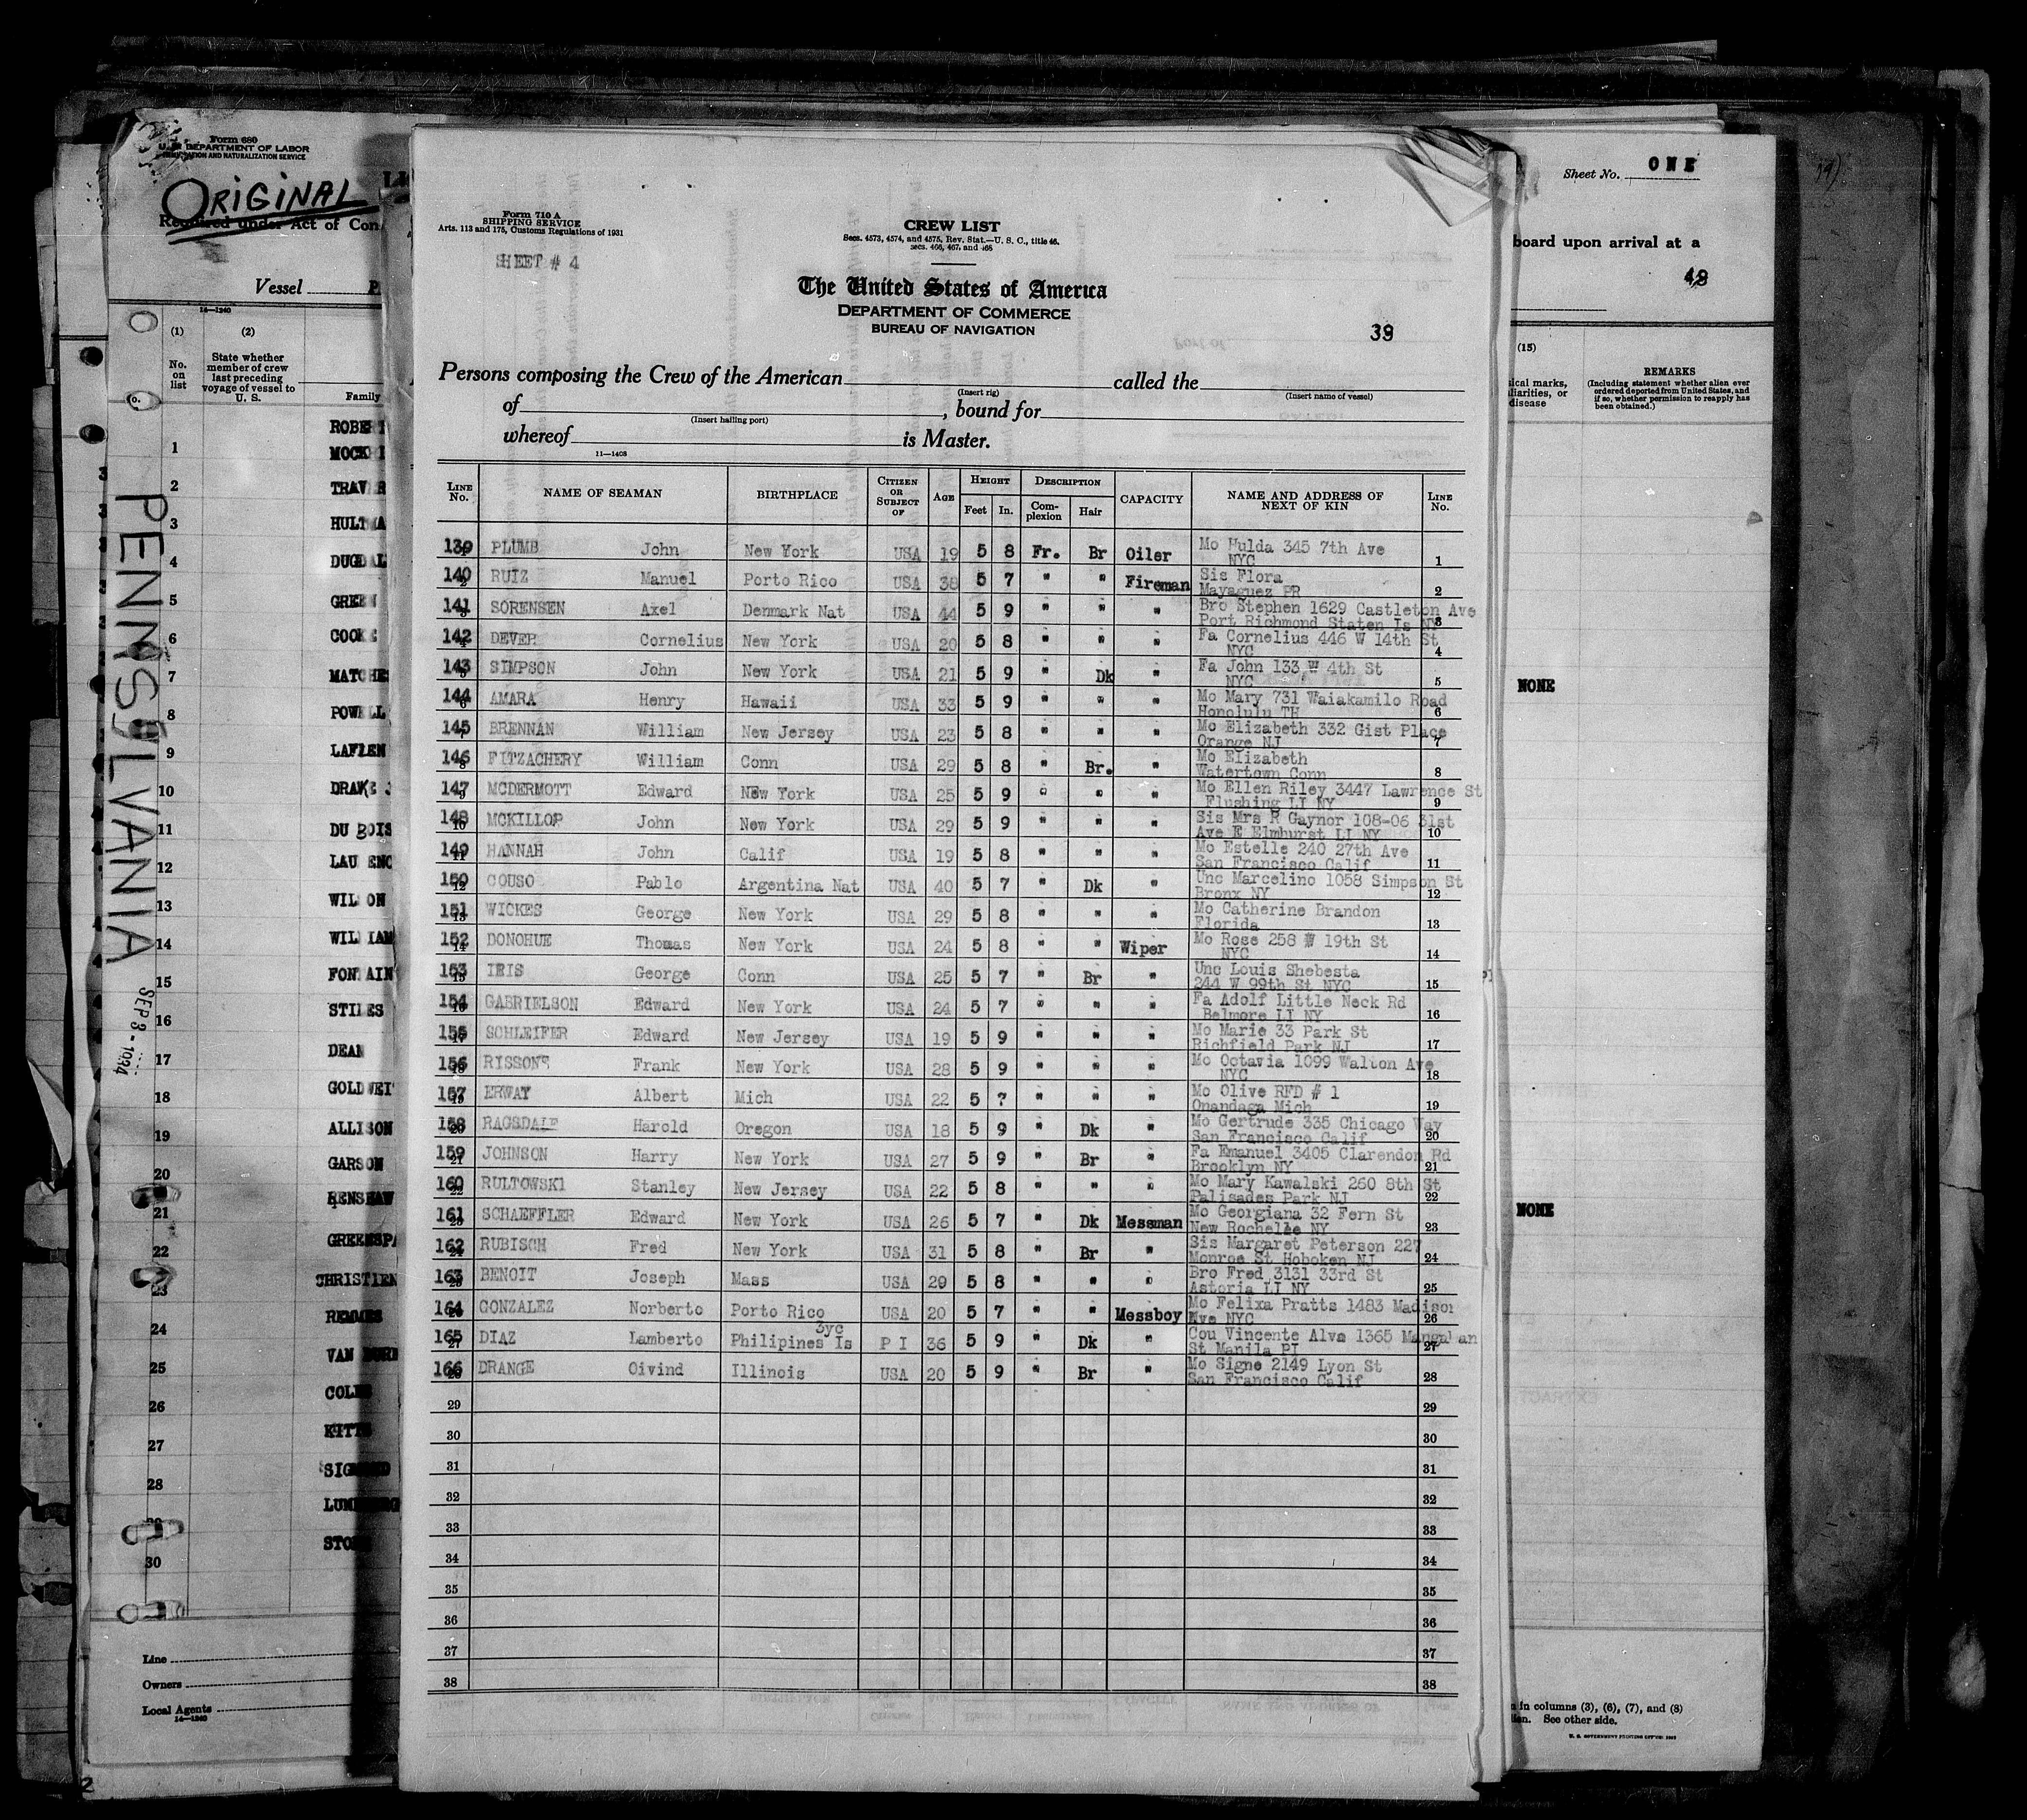 Form 680
U. S. DEPARTMENT OF LABOR
IMMIGRATION AND NATURALIZATION SERVICE
ORIGINAL
Required under Act of Con
Vessel
14—1240
(1)
(2)
No. on list
State whether member of crew last preceding voyage of vessel to U. S.
Family
PENNSYLVANIA
SEP 3 - 1934
1
2
3
4
5
6
7
8
9
10
11
12
13
14
15
16
17
18
19
20
21
22
23
24
25
26
27
28
30
HULTMA
DUGDAL
GREEN
COOKE
MATCHE
POWELL
LAFLEN
DRAKE J
DU BOIS
WILSON
WILLIAM
FONTAIN
STILES
DEAN
GOLDWEI
ALLISON
GARSON
RENSHAW
GREENSPA
CHRISTIEN
REMMES
VAN
COLE
STO
Line
Owners
Local Agents
14—1240
Form 710 A
SHIPPING SERVICE
Arts. 113 and 175, Customs Regulations of 1931
SHEET # 4
CREW LIST
Secs. 4573, 4574, and 4575, Rev. Stat.—U. S. C., title 46,
secs. 466, 467, and 468
The United States of America
DEPARTMENT OF COMMERCE
BUREAU OF NAVIGATION
39
Persons composing the Crew of the American called the
(Insert rig) (Insert name of vessel)
of , bound for
(Insert hailing port)
whereof is Master.
11—1408
LINE No. NAME OF SEAMAN BIRTHPLACE CITIZEN OR SUBJECT OF AGE HEIGHT Feet In. DESCRIPTION Complexion Hair CAPACITY NAME AND ADDRESS OF NEXT OF KIN LINE No.
139 PLUMB John New York USA 19 5 8 Fr. Br Oiler Mo Hulda 345 7th Ave
NYC 1
140 RUIZ Manuel Porto Rico USA 38 5 7 " " Fireman Sis Flora
Mayaguez PR 2
141 SORENSEN Axel Denmark Nat USA 44 5 9 " " " Bro Stephen 1629 Castleton Ave
Port Richmond Staten Is NY 3
142 DEVER Cornelius New York USA 20 5 8 " " " Fa Cornelius 446 W 14th St
NYC 4
143 SIMPSON John New York USA 21 5 9 " Dk " Fa John 133 W 4th St
NYC 5
144 AMARA Henry Hawaii USA 33 5 9 " " " Mo Mary 731 Waiakamilo Road
Honolulu TH 6
145 BRENNAN William New Jersey USA 23 5 8 " " " Mo Elizabeth 332 Gist Place
Orange NJ 7
146 FITZACHERY William Conn USA 29 5 8 " Br. " Mo Elizabeth
Watertown Conn 8
147 MCDERMOTT Edward NEw York USA 25 5 9 " " " Mo Ellen Riley 3447 Lawrence St
Flushing LI NY 9
148 MCKILLOP John New York USA 29 5 9 " " " Sis Mrs R Gaynor 108-06 31st
Ave E Elmhurst LI NY 10
149 HANNAH John Calif USA 19 5 8 " " " Mo Estelle 240 27th Ave
San Francisco Calif 11
150 COUSO Pablo Argentina Nat USA 40 5 7 " Dk " Unc Marcelino 1058 Simpson St
Bronx NY 12
151 WICKES George New York USA 29 5 8 " " " Mo Catherine Brandon
Florida 13
152 DONOHUE Thomas New York USA 24 5 8 " " Wiper Mo Rose 258 W 19th St
NYC 14
153 IRIS George Conn USA 25 5 7 " Br " Unc Louis Shebesta
244 W 99th St NYC 15
154 GABRIELSON Edward New York USA 24 5 7 " " " Fa Adolf Little Neck Rd
Belmore LI NY 16
155 SCHLEIFER Edward New Jersey USA 19 5 9 " " " Mo Marie 33 Park St
Richfield Park NJ 17
156 RISSONE Frank New York USA 28 5 9 " " " Mo Octavia 1099 Walton Ave
NYC 18
157 ERWAY Albert Mich USA 22 5 7 " " " Mo Olive RFD # 1
Onandaga Mich 19
158 RAGSDALE Harold Oregon USA 18 5 9 " Dk " Mo Gertrude 335 Chicago Way
San Francisco Calif 20
159 JOHNSON Harry New York USA 27 5 9 " Br " Fa Emanuel 3405 Clarendon Rd
Brooklyn NY 21
160 RULTOWSKI Stanley New Jersey USA 22 5 8 " " " Mo Mary Kawalski 260 8th St
Palisades Park NJ 22
161 SCHAEFFLER Edward New York USA 26 5 7 " Dk Messman Mo Georgiana 32 Fern St
New Rochelle NY 23
162 RUBISCH Fred New York USA 31 5 8 " Br " Sis Margaret Peterson 227
Monroe St Hoboken NJ 24
163 BENOIT Joseph Mass USA 29 5 8 " " " Bro Fred 3131 33rd St
Astoria LI NY 25
164 GONZALEZ Norberto Porto Rico USA 20 5 7 " " Messboy Mo Felixa Pratts 1483 Madison
Ave NYC 26
3yc
165 DIAZ Lamberto Philipines Is P I 36 5 9 " Dk " Cou Vincente Alva 1365
St Manila PI 27
166 DRANGE Oivind Illinois USA 20 5 9 " Br " Mo Signe 2149 Lyon St
San Francisco Calif 28
29 29
30 30
31 31
32 32
33 33
34 34
35 35
36 36
37 37
38 38
Sheet No. ONE
board upon arrival at a
(15)
REMARKS
(Including statement whether alien ever ordered deported from United States, and if so, whether permission to reapply has been obtained.)
ical marks,
liarities, or
disease
NONE
NONE
in columns (3), (6), (7), and (8)
See other side.